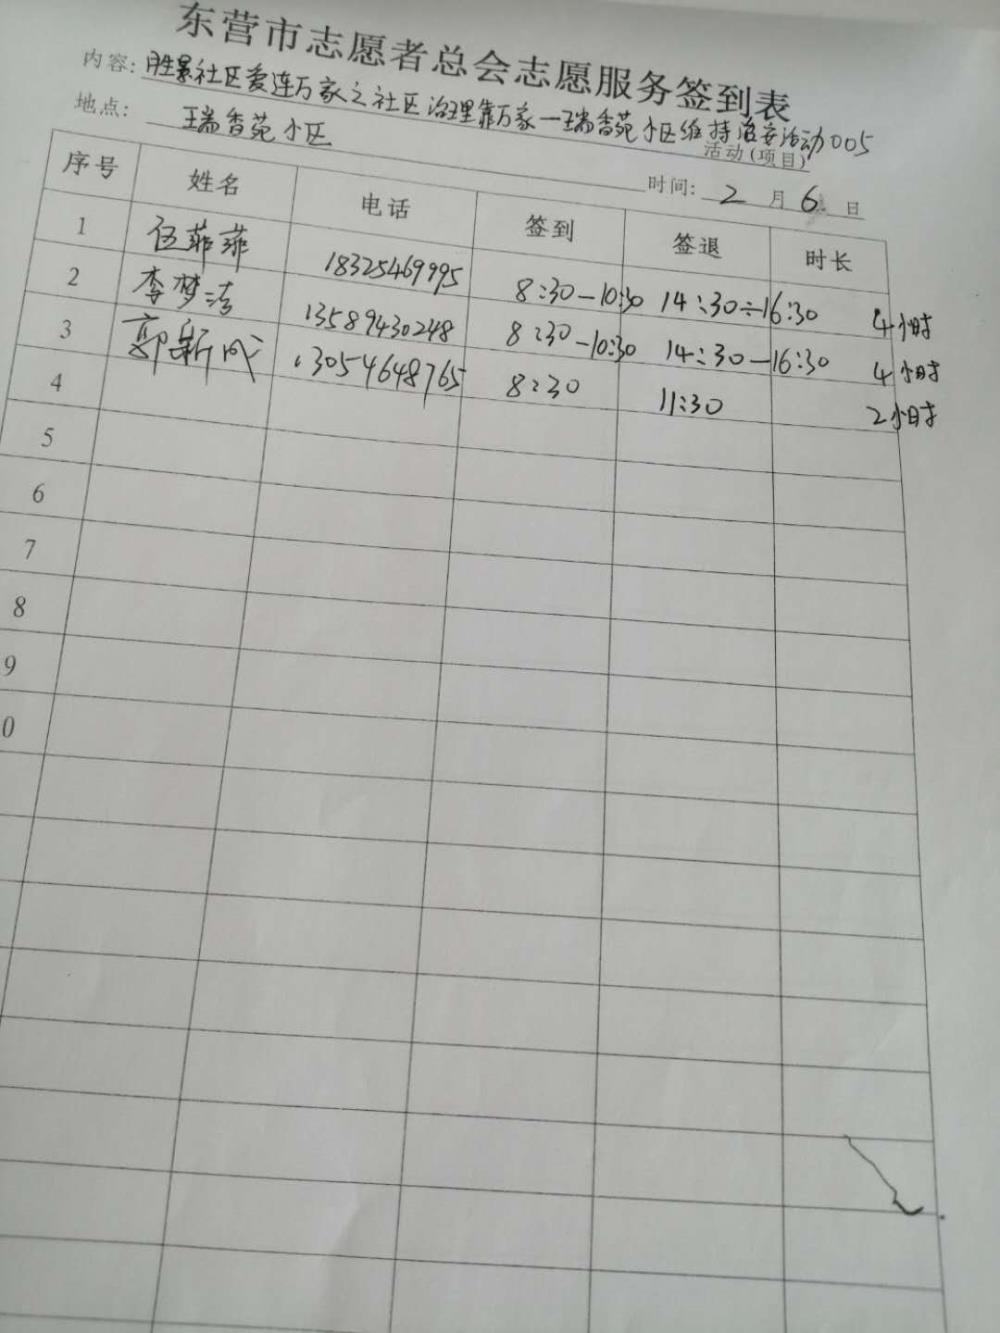 东营市志愿者总会志愿服务签到表
内容: 胜景社区爱连万家之社区治理靠万家—瑞香苑小区维持治安活动005
活动(项目)
地点: 瑞香苑小区
时间: 2月6日
序号 姓名 电话 签到 签退 时长
1 伍菲菲 18325469995 8:30-10:30 14:30-16:30 4小时
2 李梦洁 13589430248 8:30-10:30 14:30-16:30 4小时
3 郭新成 13054648765 8:30 11:30 2小时
4
5
6
7
8
9
0